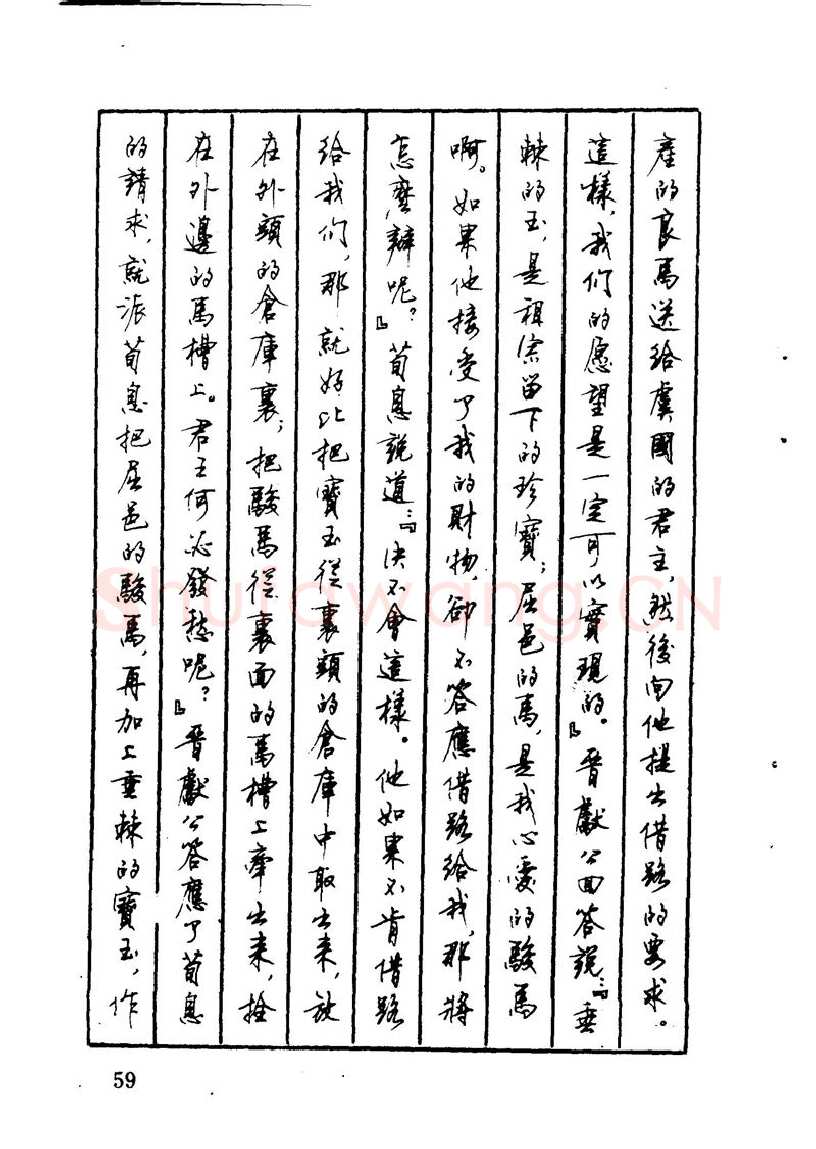 産的良馬送給虞國的君主,然後向他提出借路的要求。
這樣,我们的愿望是一定可以實現的。』晉獻公回答說:『垂
棘的玉,是祖宗留下的珍寶;屈邑的馬,是我心愛的駿馬
啊。如果他接受了我的財物,卻不答應借路給我,那將
怎麽辦呢?』荀息說道:『决不會這樣。他如果不肯借路
給我们,那就好比把寶玉從裏頭的倉庫中取出来,放
在外頭的倉庫裏;把駿馬從裏面的馬槽上牽出来,拴
在外邊的馬槽上。君王何必發愁呢?』晉獻公答應了荀息
的請求,就派荀息把屈邑的駿馬,再加上垂棘的寶玉,作
59
Shufawang.CN